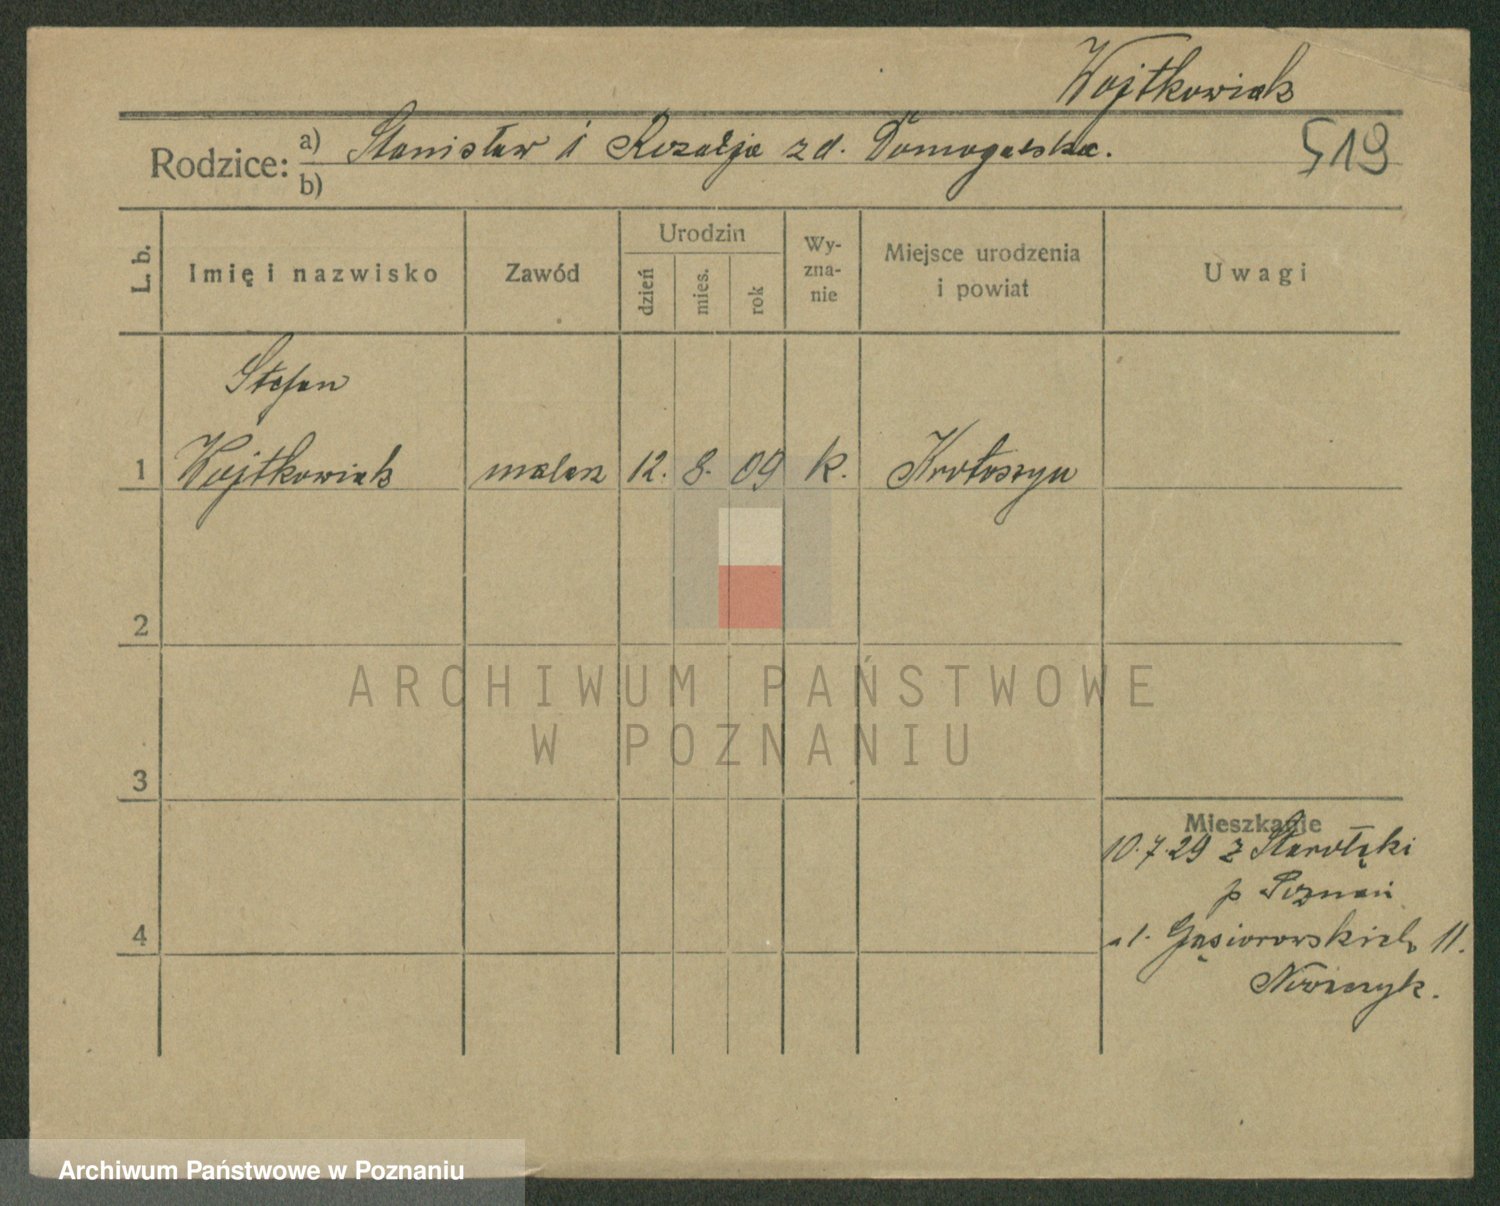 Wojtkowiak
Rodzice: a) Stanisław i Rozalja zd. Domogalska.
b)
519
L. b.
Imię i nazwisko
Zawód
Urodzin
dzień
mies.
rok
Wy-
zna-
nie
Miejsce urodzenia
i powiat
Uwagi
Stefan
1 Wojtkowiak malarz 12. 8. 09 k. Krotoszyn
2
3
4
ARCHIWUM PAŃSTWOWE
W POZNANIU
Mieszkanie
10.7.29 z Starołęki
p Poznań
ul. Gąsiorowskich 11.
Archiwum Państwowe w Poznaniu